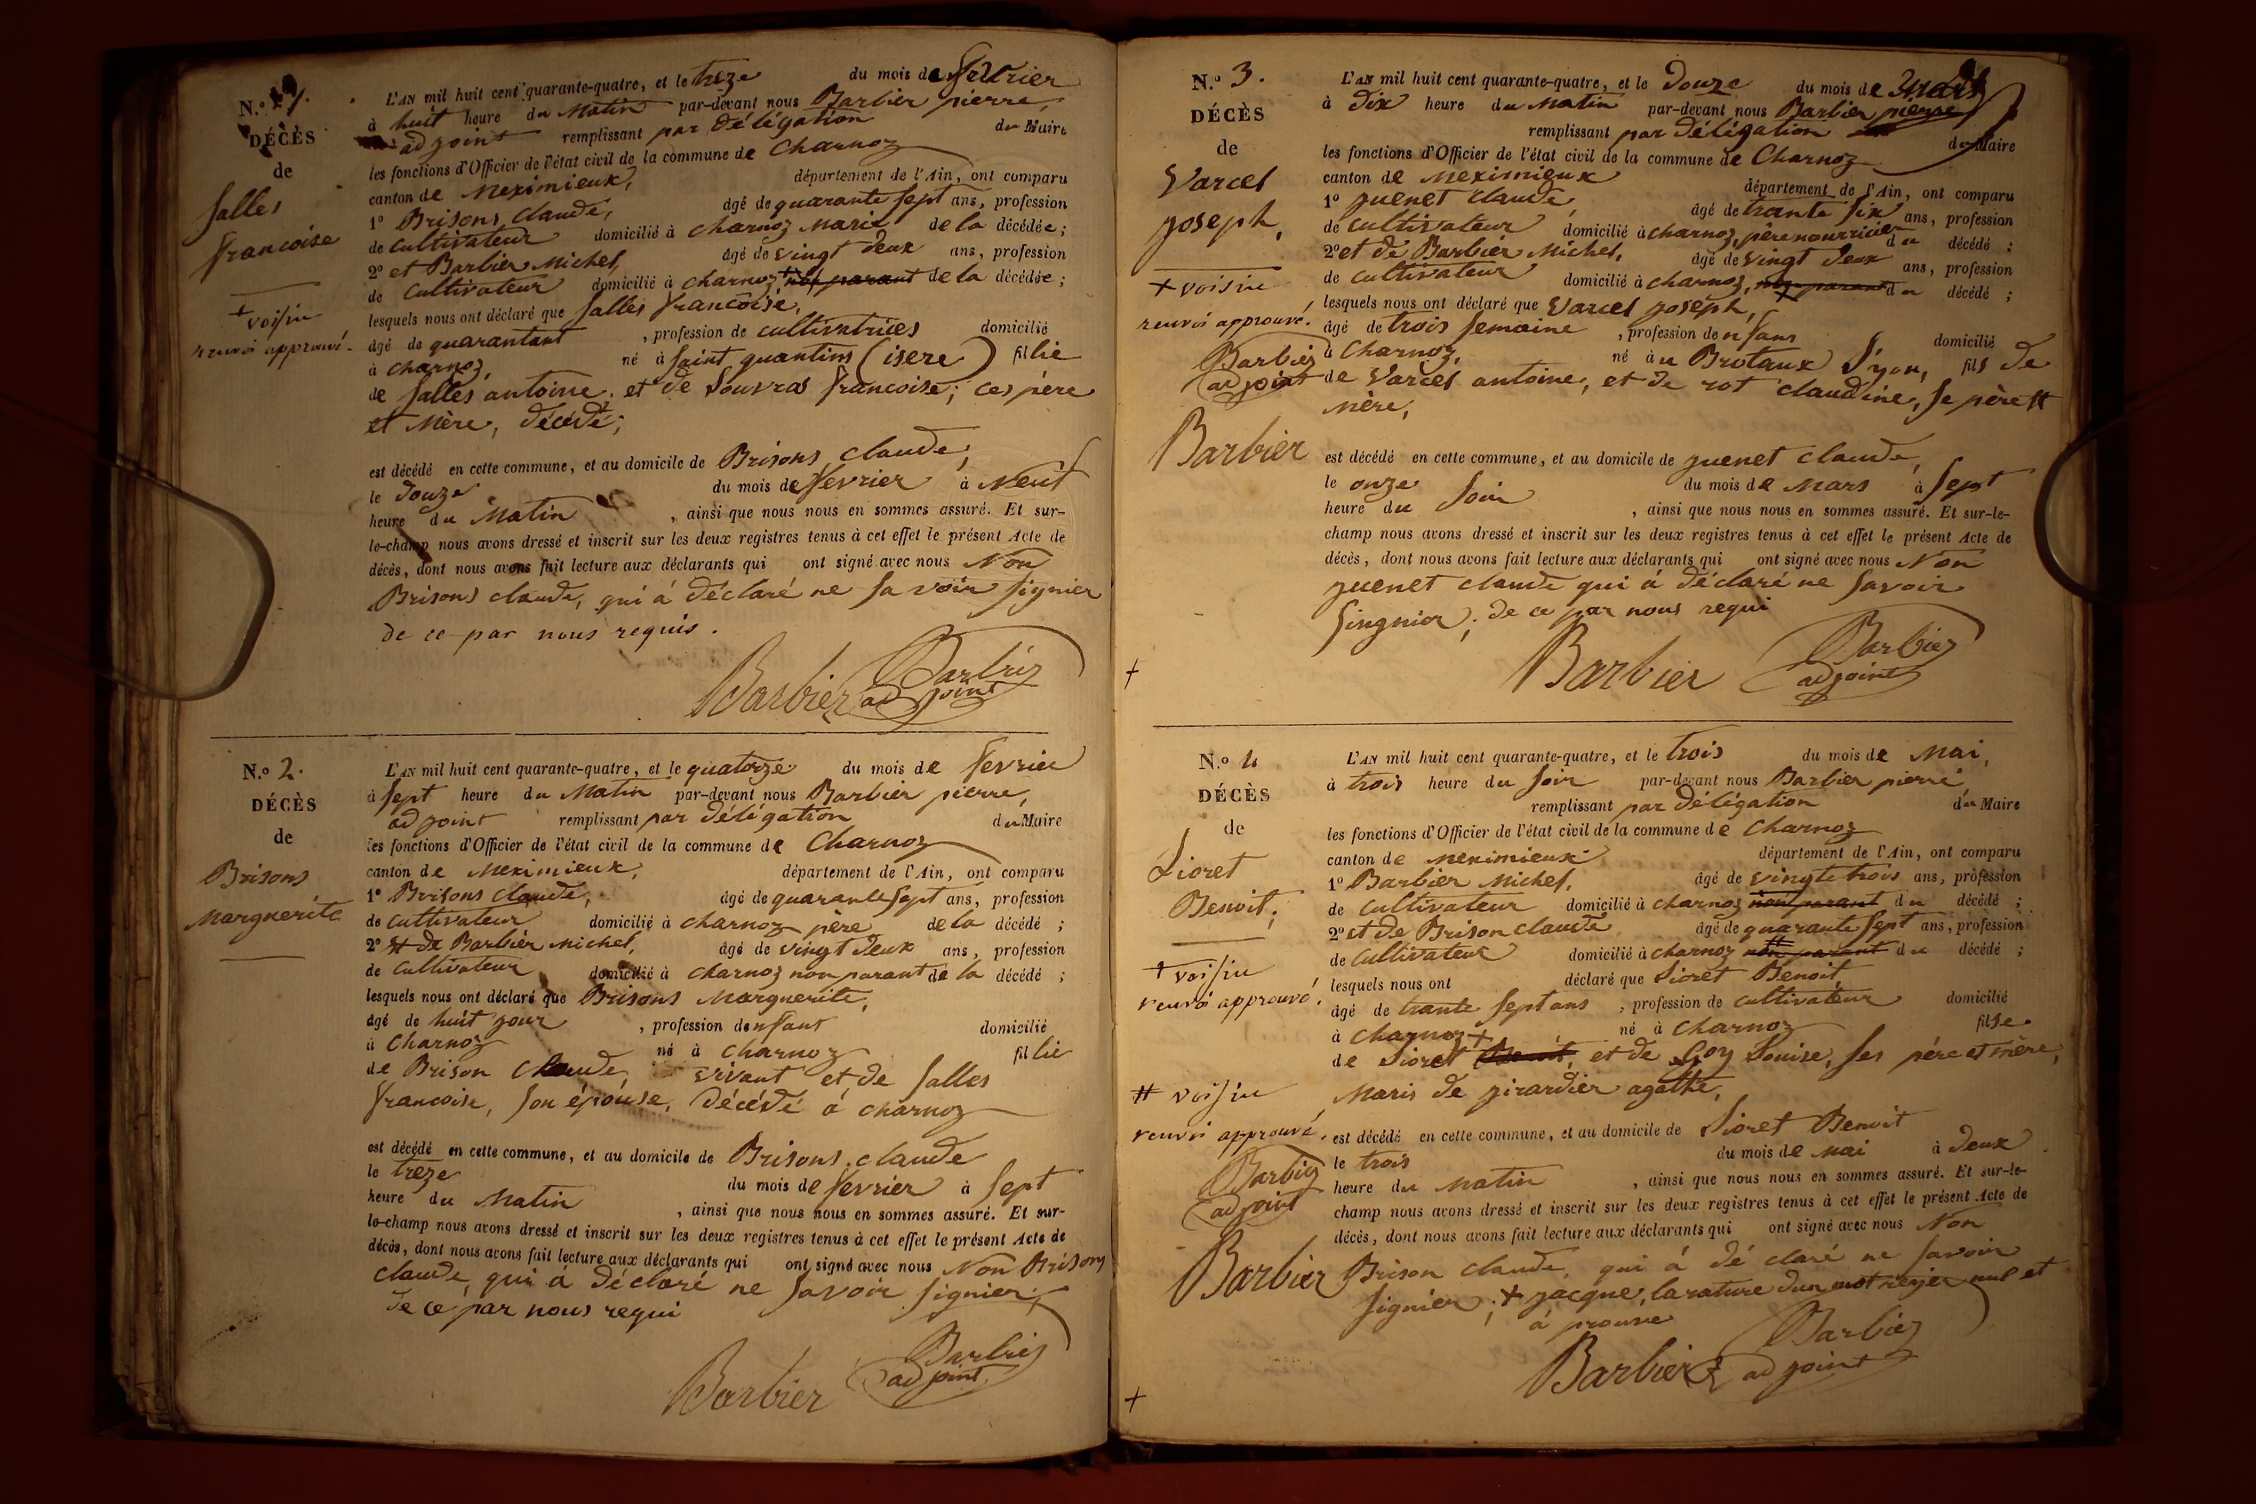 N.º 1.
DÉCÈS
de
Salles
francoise
+
voisin
renvoi approuvé.
L'AN mil huit cent quarante-quatre, et le treze du mois de février
à huit heure du Matin par-devant nous Barbier pierre,
adjoint remplissant par délégation du Maire
les fonctions d'Officier de l'état civil de la commune de Charnoz
canton de Meximieux, département de l'Ain, ont comparu
1º Brisons Claude, âgé de quarante sept ans, profession
de cultivateur domicilié à charnoz Marie de la décédée;
2º et Barbier Michel, âgé de vingt deux ans, profession
de cultivateur domicilié à charnoz + non parant de la décédée;
lesquels nous ont déclaré que Salles francoise,
âgé de quarantant, profession de cultivatrices domicilié
à charnoz, né à Saint quantins (isere) fillie
de Salles antoine, et de Souvras francoise; ces père
et Mère, décédé;
est décédé en cette commune, et au domicile de Brisons claude,
le douze du mois de fevrier à Neuf
heure du Matin, ainsi que nous nous en sommes assuré. Et sur-
le-champ nous avons dressé et inscrit sur les deux registres tenus à cet effet le présent Acte de
décès, dont nous avons fait lecture aux déclarants qui ont signé avec nous Non
Brisons claude, qui á déclaré ne savoir signier
de ce par nous requis.
Barbier Barbier
adjoint
N.º 2.
DÉCÈS
de
Brisons
Marguerite
L'AN mil huit cent quarante-quatre, et le quatorze du mois de fevrier
à sept heure du Matin par-devant nous Barbier pierre,
adjoint remplissant par délégation du Maire
les fonctions d'Officier de l'état civil de la commune de Charnoz
canton de Meximieux, département de l'Ain, ont comparu
1º Brisons claude, âgé de quarante sept ans, profession
de cultivateur domicilié à charnoz père de la décédé;
2º et de Barbier Michel, âgé de vingt deux ans, profession
de cultivateur domicilié à charnoz non parant de la décédé;
lesquels nous ont déclaré que Brisons Marguerite,
âgé de huit jour, profession denfant domicilié
à Charnoz né à charnoz fillie
de Brison Claude, vivant et de Salles
francoise, son épouse, décédé á charnoz
est décédé en cette commune, et au domicile de Brisons claude
le treze du mois de fevrier à sept
heure du Matin, ainsi que nous nous en sommes assuré. Et sur-
le-champ nous avons dressé et inscrit sur les deux registres tenus à cet effet le présent Acte de
décès, dont nous avons fait lecture aux déclarants qui ont signé avec nous Non Brisons
claude, qui á déclaré ne savoir signier,
de ce par nous requi
Barbier Barbier
adjoint
N.º 3.
DÉCÈS
de
Varcel
joseph,
+ voisin
renvoi approuvé.
Barbier
adjoint
Barbier
L'AN mil huit cent quarante-quatre, et le douze du mois de Mars
à dix heure du Matin par-devant nous Barbier pierre
remplissant par délégation du Maire
les fonctions d'Officier de l'état civil de la commune de Charnoz
canton de Meximieux département de l'Ain, ont comparu
1º juenet claude, âgé de trante six ans, profession
de cultivateur domicilié à charnoz, père nourricier du décédé;
2º et de Barbier Michel, âgé de vingt deux ans, profession
de cultivateur domicilié à charnoz, non parant du décédé;
lesquels nous ont déclaré que Varcel joseph,
âgé de trois semaine, profession denfans domicilié
à Charnoz, né au Brotaux Lyon, fils de
de Varcel antoine, et de rot claudine, se père et
mère,
est décédé en cette commune, et au domicile de juenet claude,
le onze du mois de Mars à sept
heure du soir, ainsi que nous nous en sommes assuré. Et sur-le-
champ nous avons dressé et inscrit sur les deux registres tenus à cet effet le présent Acte de
décès, dont nous avons fait lecture aux déclarants qui ont signé avec nous Non
juenet claude qui á déclaré ne savoir
singnier, de ce par nous requi
Barbier Barbier
adjoint
+
N.º 4
DÉCÈS
de
Lioret
Benoit,
+ voisin
renvoi approuvé.
# voisin
renvoi approuvé.
Barbier
adjoint
Barbier
L'AN mil huit cent quarante-quatre, et le trois du mois de Mai,
à trois heure du soir par-devant nous Barbier pierre
remplissant par délégation du Maire
les fonctions d'Officier de l'état civil de la commune de Charnoz
canton de Meximieux département de l'Ain, ont comparu
1º Barbier Michel, âgé de vingte trois ans, profession
de cultivateur domicilié à charnoz non parant du décédé;
2º et de Brison claude âgé de quarante sept ans, profession
de cultivateur domicilié à charnoz non parant du décédé;
lesquels nous ont déclaré que Lioret Benoit,
âgé de trante sept ans, profession de cultivateur domicilié
à charnoz né à charnoz filse
de Lioret + Benoit, et de Goy Louise, ses père et mère,
Maris de girardier agathe,
est décédé en cette commune, et au domicile de Lioret Benoit
le trois du mois de Mai à deux
heure du Matin, ainsi que nous nous en sommes assuré. Et sur-le-
champ nous avons dressé et inscrit sur les deux registres tenus à cet effet le présent Acte de
décès, dont nous avons fait lecture aux déclarants qui ont signé avec nous Non
Brison claude, qui á dé claré ne savoir
signier; + jacque, la rature dun mot nul et
á prouve
Barbier Barbier
adjoint
+